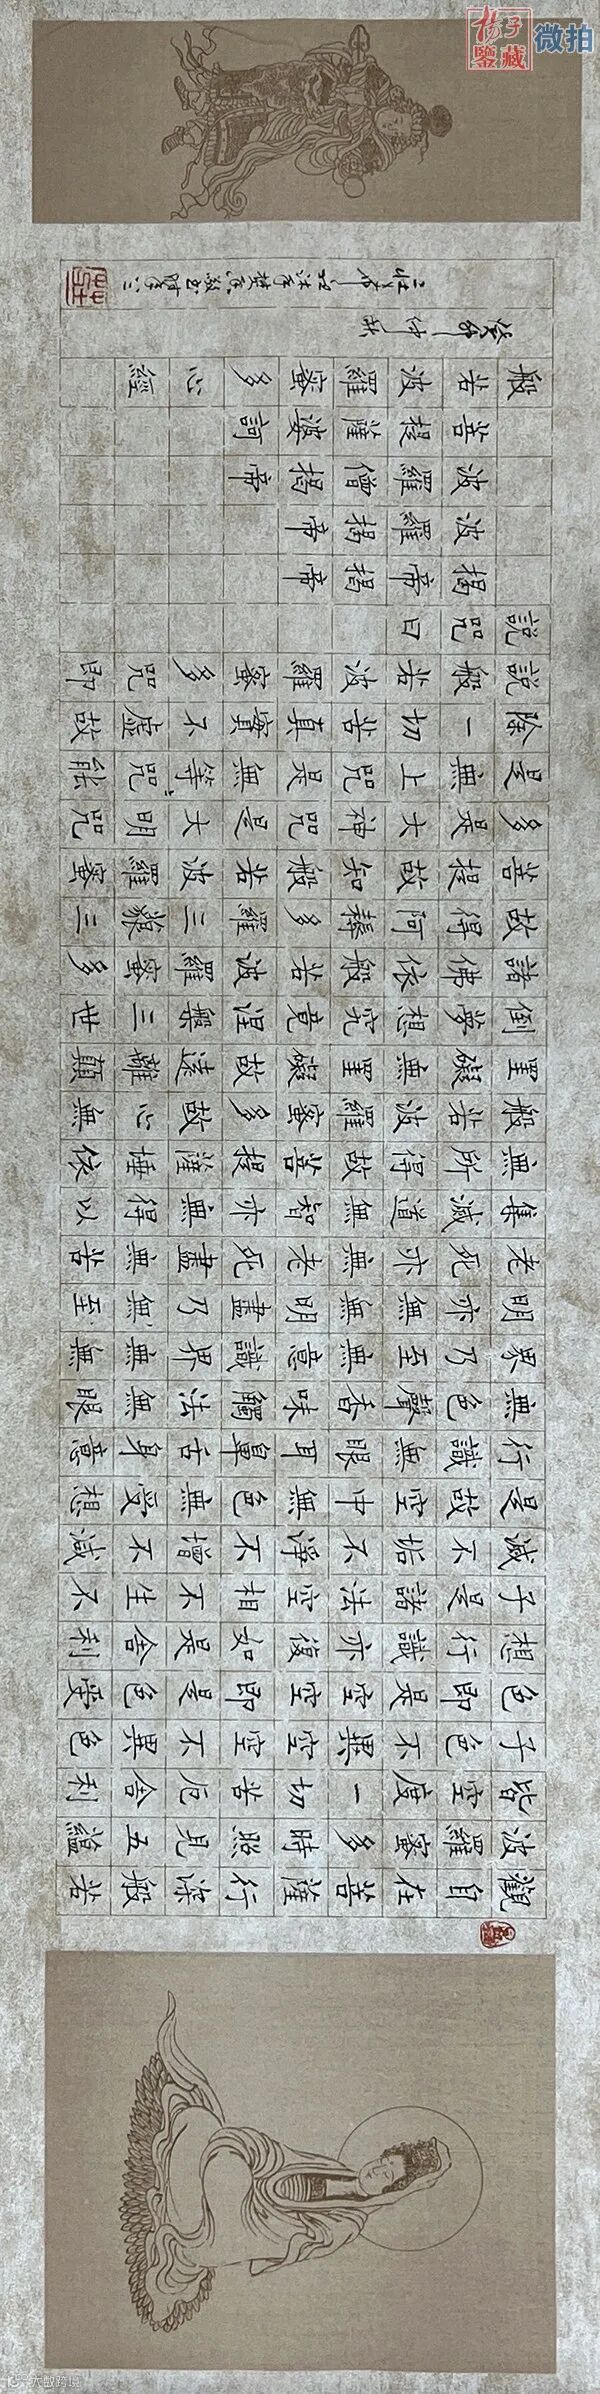 觀自在菩薩行深般若
波羅蜜多時照見五蘊
皆空度一切苦厄舍利
子色不異空空不異色
色即是空空即是色受
想行識亦復如是舍利
子是諸法空相不生不
滅不垢不淨不增不減
是故空中無色無受想
行識無眼耳鼻舌身意
無色聲香味觸法無眼
界乃至無意識界無無
明亦無無明盡乃無至
老死亦無老死盡無苦
集滅道無智亦無得以
無所得故菩提薩埵依
般若波羅蜜多故心無
罣礙無罣礙故遠離顛
倒夢想究竟涅槃三世
諸佛依般若波羅蜜多
故得阿耨多羅三藐三
菩提故知般若波羅蜜
多是大神咒是大明咒
是無上咒是無等咒能
除一切苦真實不虛故
說般若波羅蜜多咒即
說咒曰
揭帝揭帝
波羅揭帝
波羅僧揭帝
菩提薩婆訶
般若波羅蜜多心經
癸卯仲秋
楊子鑒藏 微拍
大數跨境